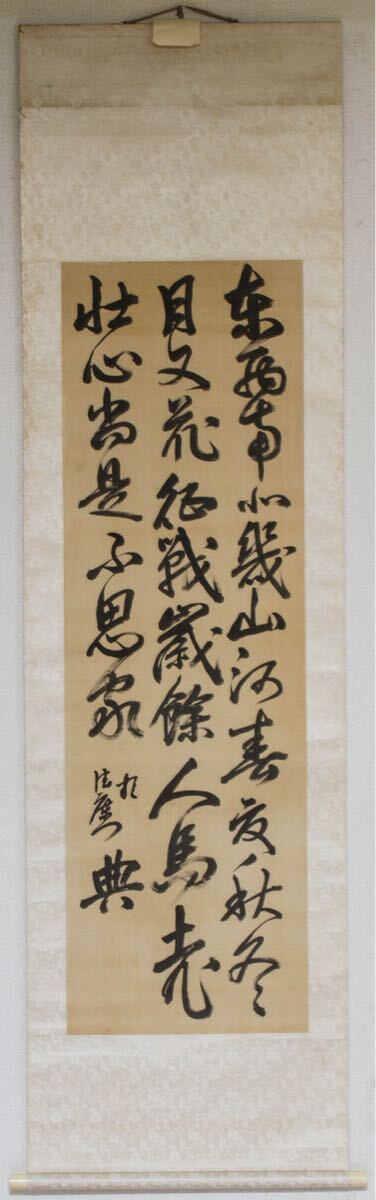 東西南北幾山河春夏秋冬
月又花征戰歲餘人馬老
壮心尚是不思家
於
法庫
典